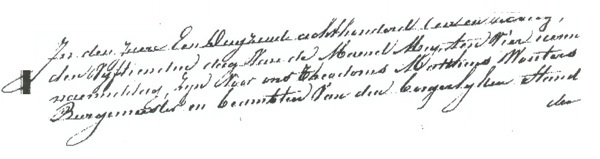 In den jaere Een duyzend achthonderd een en veertig,
den vyftienden dag van de Maend Meert ten Vier uren
naermiddag, Zyn Voor ons Theodorus Matthias Wouters
Burgemeester en beambten Van den burgerlyken stand
der